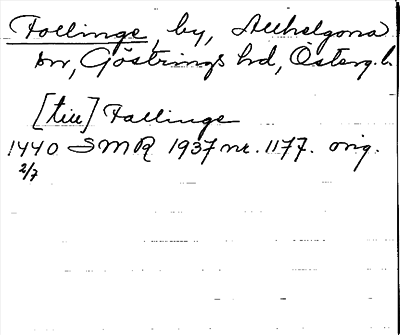 Follinge, by, Allhelgona
sn, Göstrings hd, Österg. l.
[till] Fallinge
1440 SMR 1937 nr. 1177. orig.
2/7